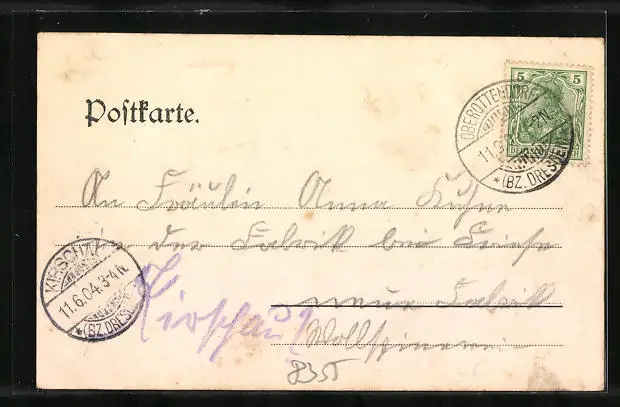 Postkarte.
5 5
OBEROTTENDORF
11.
*(BZ. DRESDEN)
An Fräulein Anna Kuhne
in der Fabrik bei
KIRSCHAU
11.6.04. 3-4 N.
*(BZ. DRESDEN)
Kirschau
neue Fabrik
Wollspinnerei
8355